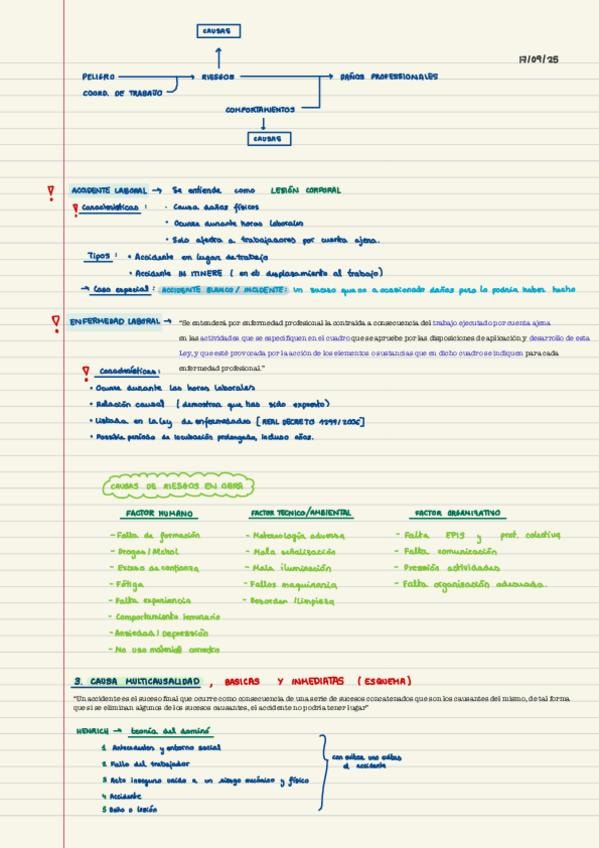 CAUSAS
17/09/25
PELIGRO RIESGOS DAÑOS PROFESSIONALES
COORD. DE TRABAJO
COMPORTAMIENTOS
CAUSAS
! ACCIDENTE LABORAL → Se entiende como LESIÓN CORPORAL
! Características: · Causa daños físicos
• Ocurre durante horas laborales
• Solo afecta a trabajadores por cuenta ajena.
Tipos: • Accidente en lugar de trabajo
• Accidente IN ITINERE ( en el desplazamiento al trabajo)
→ Caso especial: ACCIDENTE BLANCO / INCIDENTE: un suceso que no a ocasionado daños pero lo podría haber hecho
! ENFERMEDAD LABORAL → "Se entenderá por enfermedad profesional la contraída a consecuencia del trabajo ejecutado por cuenta ajena
en las actividades que se especifiquen en el cuadro que se apruebe por las disposiciones de aplicación y desarrollo de esta
Ley, y que esté provocada por la acción de los elementos o sustancias que en dicho cuadro se indiquen para cada
enfermedad profesional."
! Características:
• Ocurre durante las horas laborales
• Relación causal ( demostrar que has sido expuesto)
• Listada en la ley de enfermedades [ REAL DECRETO 1299/2006]
• Possible período de incubación prolongada, incluso años.
CAUSAS DE RIESGOS EN OBRA
FACTOR HUMANO FACTOR TECNICO/AMBIENTAL FACTOR ORGANISATIVO
- Falta de formación - Meteorología adversa - Falta EPIS y prot. colectiva
- Drogas / Alchol - Mala señalización - Falta comunicación
- Exceso de confianza - Mala iluminación - Pressión actividades
- Fátiga - Fallos maquinaria - Falta organización adecuada.
- Falta experiencia - Desorden / Limpieza
- Comportamiento temerario
- Ansiedad / Depressión
- No uso material correcto
3. CAUSA MULTICAUSALIDAD , BASICAS Y INMEDIATAS ( ESQUEMA)
"Un accidente es el suceso final que ocurre como consecuencia de una serie de sucesos concatenados que son los causantes del mismo, de tal forma
que si se eliminan algunos de los sucesos causantes, el accidente no podría tener lugar"
HENRICH → teoría del dominó
1 Antecedentes y entorno social
2 Fallo del trabajador con evitar uno evitas
el accidente
3 Acto inseguro unido a un riesgo mecánico y físico
4 Accidente
5 Daño o lesión